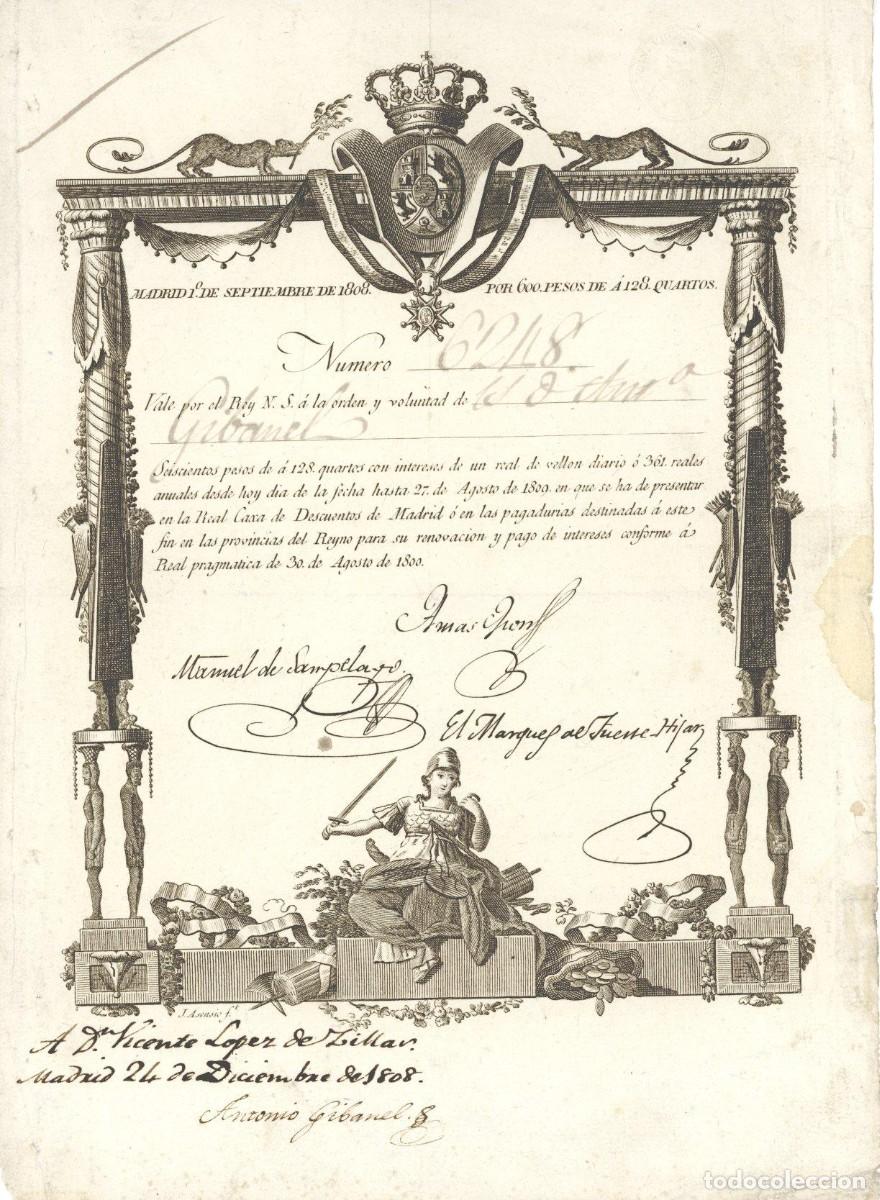 MADRID 1º. DE SEPTIEMBRE DE 1808.
POR 600. PESOS DE Á 128. QUARTOS.
Numero 6248
Vale por el Rey N. S. á la orden y voluntad de
Gibanel
Seiscientos pesos de á 128. quartos con intereses de un real de vellon diario ó 361. reales
anuales desde hoy dia de la fecha hasta 27. de Agosto de 1809. en que se ha de presentar
en la Real Caxa de Descuentos de Madrid ó en las pagadurias destinadas á este
fin en las provincias del Reyno para su renovacion y pago de intereses conforme á
Real pragmatica de 30. de Agosto de 1800.
Manuel de Sampelayo.
El Marques de Fuerte-Hijar
J. Asensio f.t
A Dn. Vicente Lopez de Zillar.
Madrid 24 de Diciembre de 1808.
Antonio Gibanel.
todocoleccion